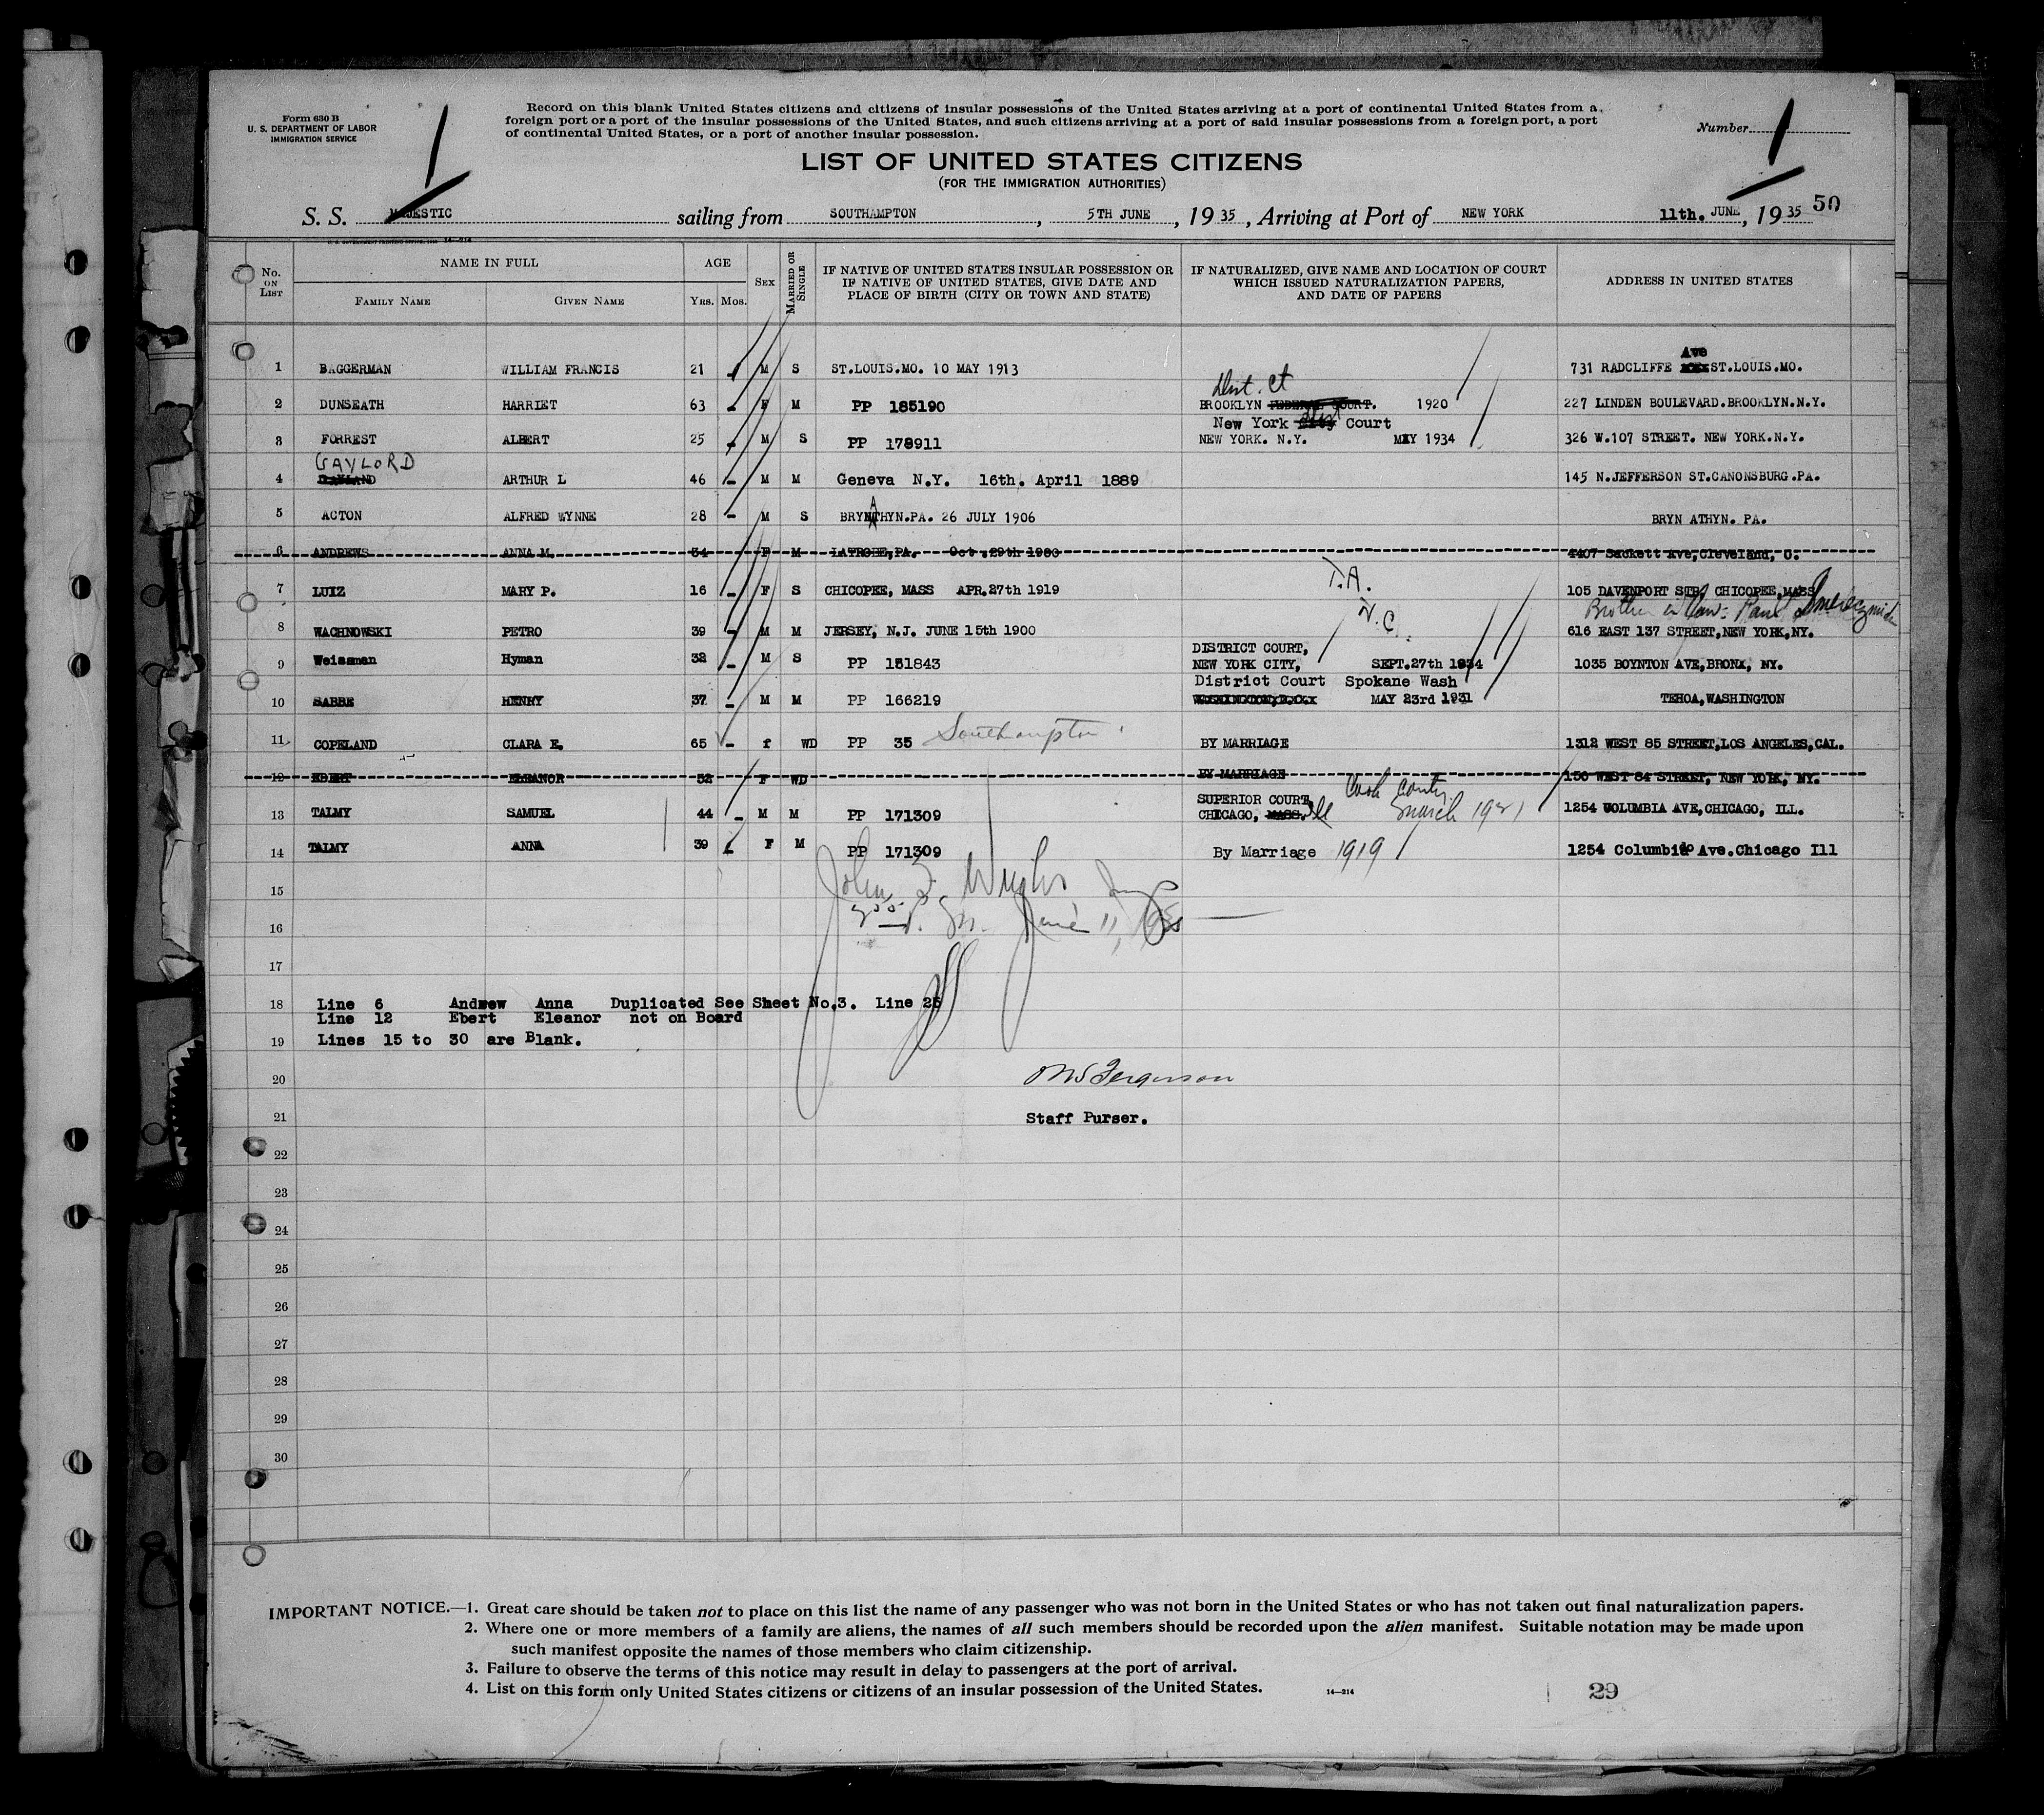 Form 630 B
U. S. DEPARTMENT OF LABOR
IMMIGRATION SERVICE
1
Record on this blank United States citizens and citizens of insular possessions of the United States arriving at a port of continental United States from a
foreign port or a port of the insular possessions of the United States, and such citizens arriving at a port of said insular possessions from a foreign port, a port
of continental United States, or a port of another insular possession.
Number 1
LIST OF UNITED STATES CITIZENS
(FOR THE IMMIGRATION AUTHORITIES)
S. S. MAJESTIC sailing from SOUTHAMPTON, 5TH JUNE, 19 35, Arriving at Port of NEW YORK 11th. JUNE, 19 35 50
No. ON LIST NAME IN FULL AGE SEX MARRIED OR SINGLE IF NATIVE OF UNITED STATES INSULAR POSSESSION OR IF NATIVE OF UNITED STATES, GIVE DATE AND PLACE OF BIRTH (CITY OR TOWN AND STATE) IF NATURALIZED, GIVE NAME AND LOCATION OF COURT WHICH ISSUED NATURALIZATION PAPERS, AND DATE OF PAPERS ADDRESS IN UNITED STATES
FAMILY NAME GIVEN NAME YRS. MOS.
Ave
1 BAGGERMAN WILLIAM FRANCIS 21 - M S ST.LOUIS.MO. 10 MAY 1913 731 RADCLIFFE ST.LOUIS.MO.
Dist. Ct
2 DUNSEATH HARRIET 63 - F M PP 185190 BROOKLYN FEDERAL COURT. 1920 227 LINDEN BOULEVARD.BROOKLYN.N.Y.
New York City Dist Court
3 FORREST ALBERT 25 - M S PP 178911 NEW YORK. N.Y. MAY 1934 326 W.107 STREET. NEW YORK.N.Y.
GAYLORD
4 ARTHUR L 46 - M M Geneva N.Y. 16th. April 1889 145 N.JEFFERSON ST.CANONSBURG.PA.
5 ACTON ALFRED WYNNE 28 - M S BRYN ATHYN.PA. 26 JULY 1906 BRYN ATHYN. PA.
6 ANDREWS ANNA M. 34 F M LATROBE,PA. Oct.29th 1900 4407 Sackett Ave,Cleveland, O.
T.A.
7 LUIZ MARY P. 16 - F S CHICOPEE, MASS APR.27th 1919 105 DAVENPORT STR, CHICOPEE,MASS
N.C. Brother in law: Paul
8 WACHNOWSKI PETRO 39 - M M JERSEY, N.J. JUNE 15th 1900 616 EAST 137 STREET,NEW YORK,NY.
DISTRICT COURT,
9 Weissman Hyman 32 - M S PP 151843 NEW YORK CITY, SEPT.27th 1934 1035 BOYNTON AVE,BRONX, NY.
District Court Spokane Wash
10 SABBE HENRY 37 - M M PP 166219 MAY 23rd 1931 TEHOA,WASHINGTON
11 COPELAND CLARA E. 65 - f WD PP 35 Southampton BY MARRIAGE 1312 WEST 85 STREET,LOS ANGELES,CAL.
12 EBERT ELEANOR 52 F WD BY MARRIAGE 150 WEST 84 STREET, NEW YORK, NY.
SUPERIOR COURT, Cook County
13 TALMY SAMUEL 44 - M M PP 171309 CHICAGO, MASS. Ill March 1921 1254 COLUMBIA AVE,CHICAGO, ILL.
14 TALMY ANNA 39 - F M PP 171309 By Marriage 1919 1254 Columbia Ave.Chicago Ill
15 John
16 June 11, 1935
17
18 Line 6 Andrew Anna Duplicated See Sheet No.3. Line 25
Line 12 Ebert Eleanor not on Board
19 Lines 15 to 30 are Blank.
20 Ferguson
21 Staff Purser.
22
23
24
25
26
27
28
29
30
IMPORTANT NOTICE.—1. Great care should be taken not to place on this list the name of any passenger who was not born in the United States or who has not taken out final naturalization papers.
2. Where one or more members of a family are aliens, the names of all such members should be recorded upon the alien manifest. Suitable notation may be made upon
such manifest opposite the names of those members who claim citizenship.
3. Failure to observe the terms of this notice may result in delay to passengers at the port of arrival.
4. List on this form only United States citizens or citizens of an insular possession of the United States. 14—214
29